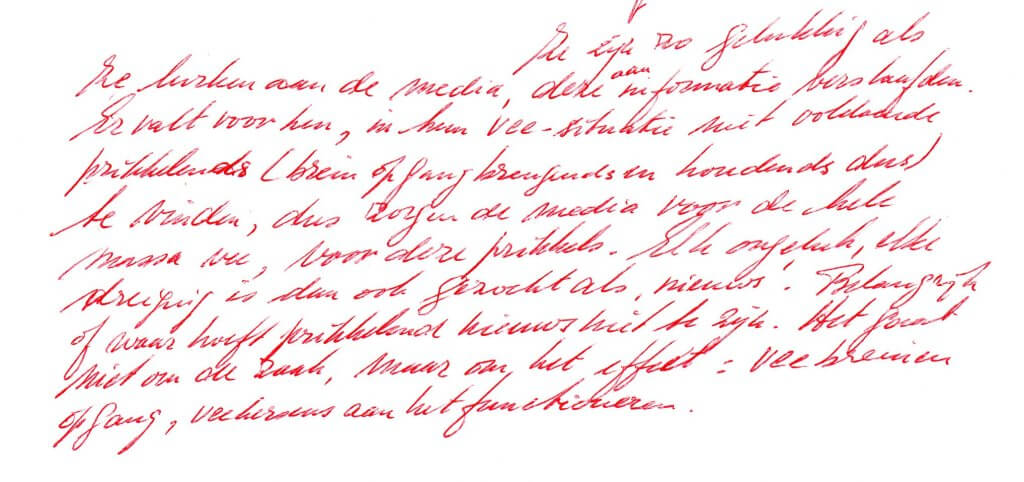 Ze zijn zo gelukkig als
Ze lurken aan de media, deze aan informatie verslaafden.
Er valt voor hen, in hun vee-situatie niet voldoende
prikkelends (brein op gang brengends en houdends dus)
te vinden, dus zorgen de media voor de hele
massa vee, voor deze prikkels. Elk ongeluk, elke
dreiging is dan ook gezocht als 'nieuws'. Belangrijk
of waar hoeft prikkelend nieuws niet te zijn. Het gaat
niet om de zaak, maar om het effect = vee breinen
op gang, veehersens aan het functioneren.